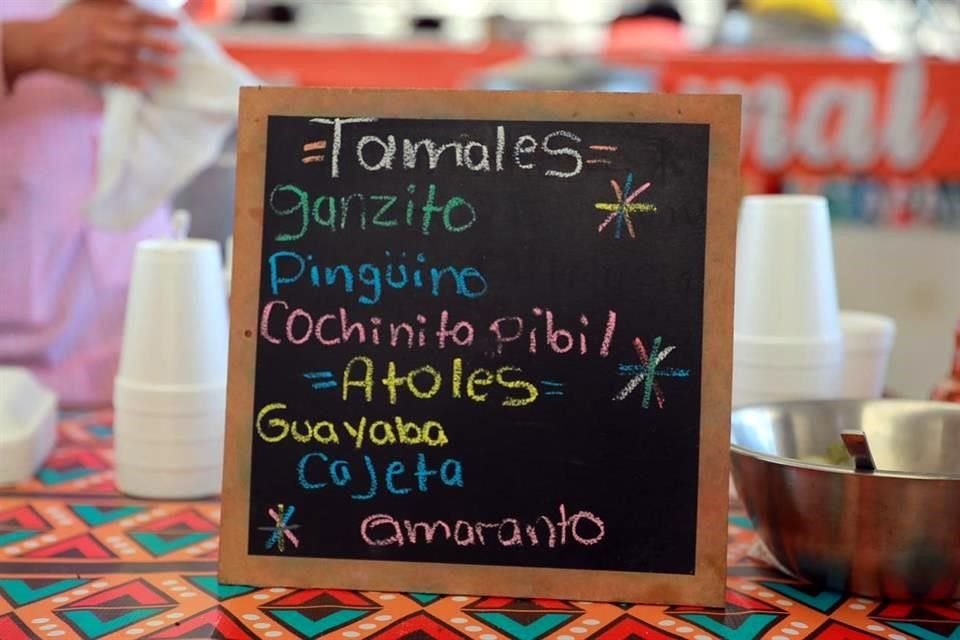 =Tamales=
ganzito
Pingüino
Cochinita pibil
=Atoles=
Guayaba
Cajeta
amaranto